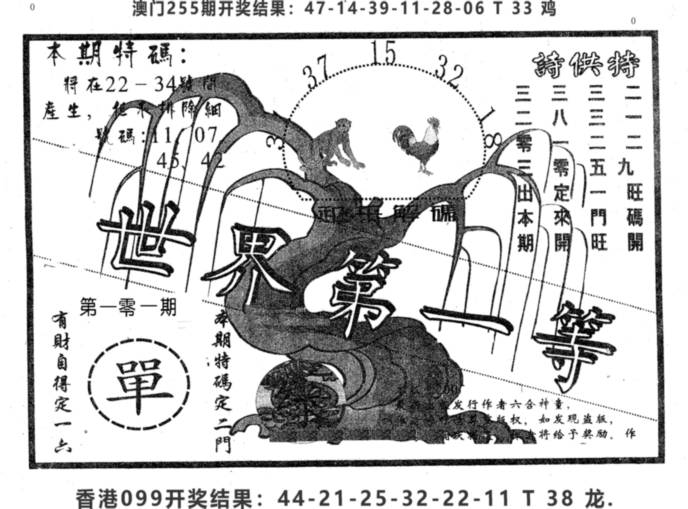 澳门255期开奖结果：47-14-39-11-28-06 T 33 鸡
0
0
本期特碼：
将在22－34期間
產生，但不排除細
號碼：11 07
45、42
37 15 32 18
特供詩
二一二九旺碼開
三三二五一門旺
三八一零定來開
三二零三出本期
解碼
世界第一等
第一零一期
有財自得定一六
單
本期特碼定二門
发行作者六合神童，
版权，如发现盗版，
将给予奖励。作
香港099开奖结果：44-21-25-32-22-11 T 38 龙.